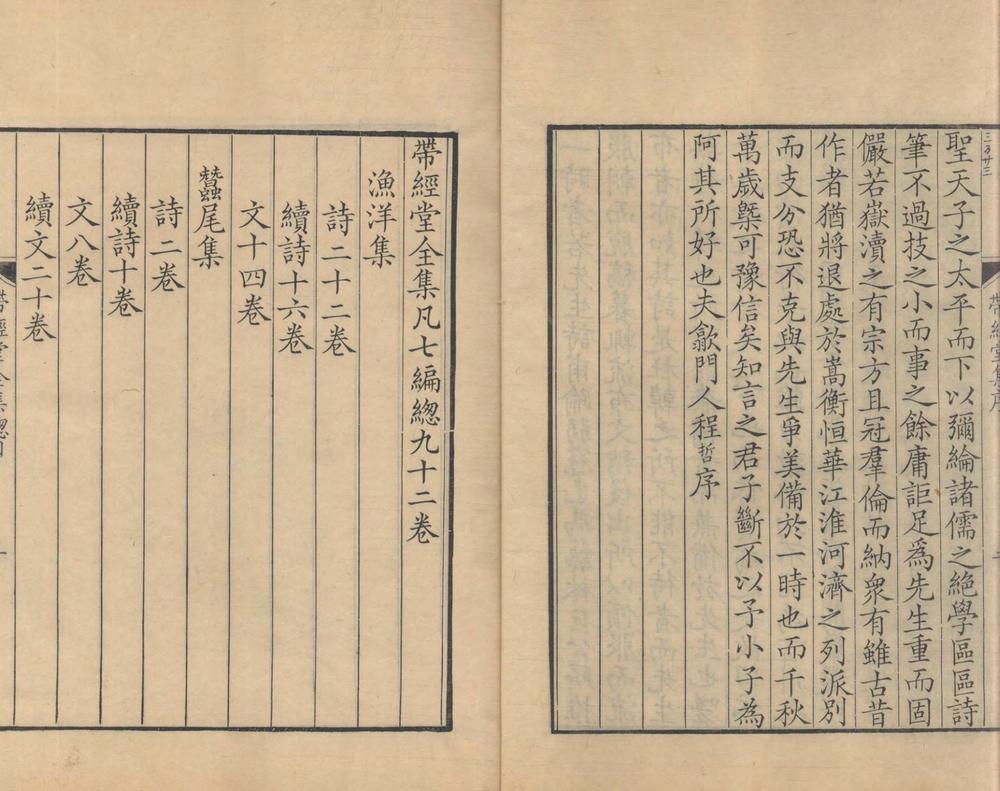 三百廿三
聖天子之太平而下以彌綸諸儒之絕學區區詩
筆不過技之小而事之餘庸詎足為先生重而固
儼若嶽瀆之有宗方且冠羣倫而納衆有雖古昔
作者猶將退處於嵩衡恒華江淮河濟之列派別
而支分恐不克與先生爭美備於一時也而千秋
萬歲槩可豫信矣知言之君子斷不以予小子為
阿其所好也夫歙門人程哲序
帶經堂集序
帶經堂全集凡七編緫九十二卷
漁洋集
詩二十二卷
續詩十六卷
文十四卷
蠶尾集
詩二卷
續詩十卷
文八卷
續文二十卷
帶經堂全集緫目
一